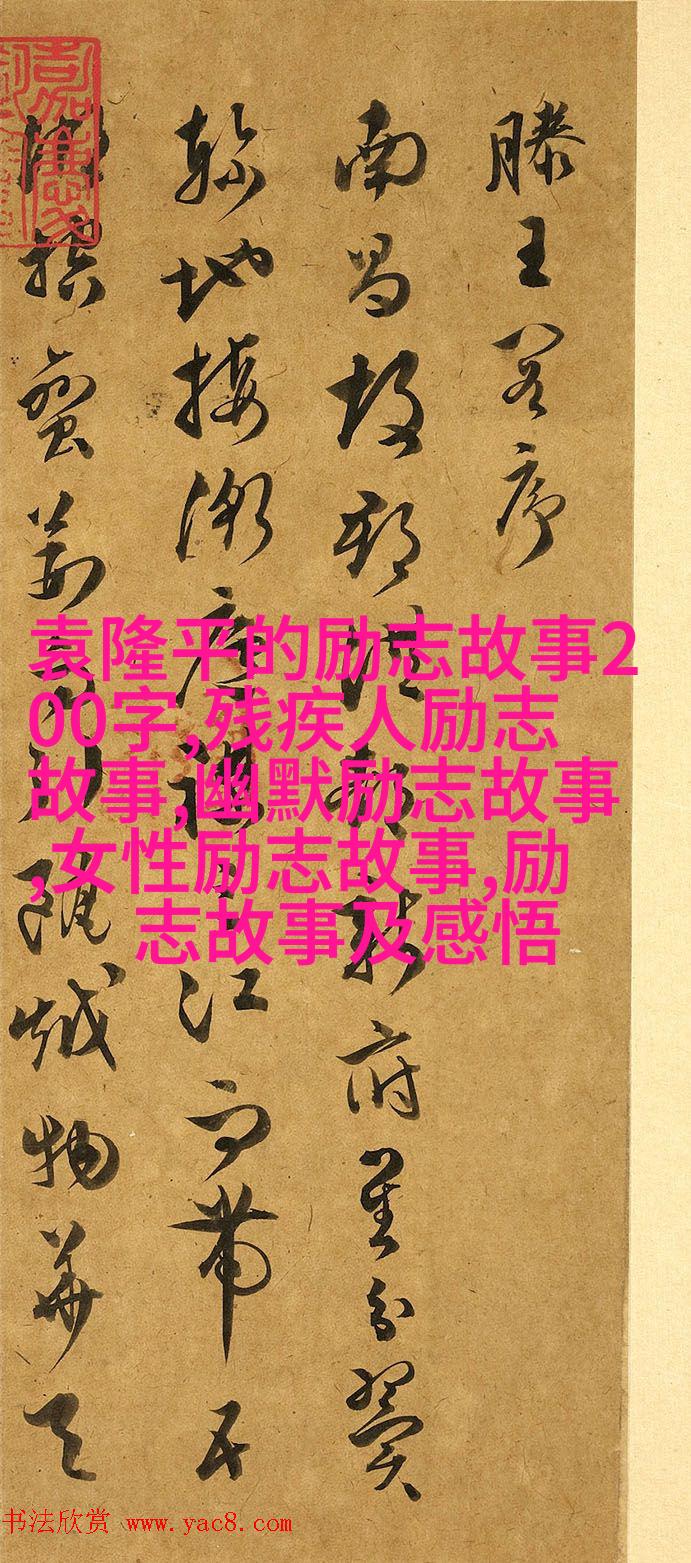 滕王閣序
南昌故郡洪都新府星分翼
軫地接衡廬襟三江而帶五
湖控蠻荊而引甌越物華天
袁隆平的励志故事2
00字,残疾人励志
故事,幽默励志故事
,女性励志故事,励
志故事及感悟
书法欣赏 www.yac8.com